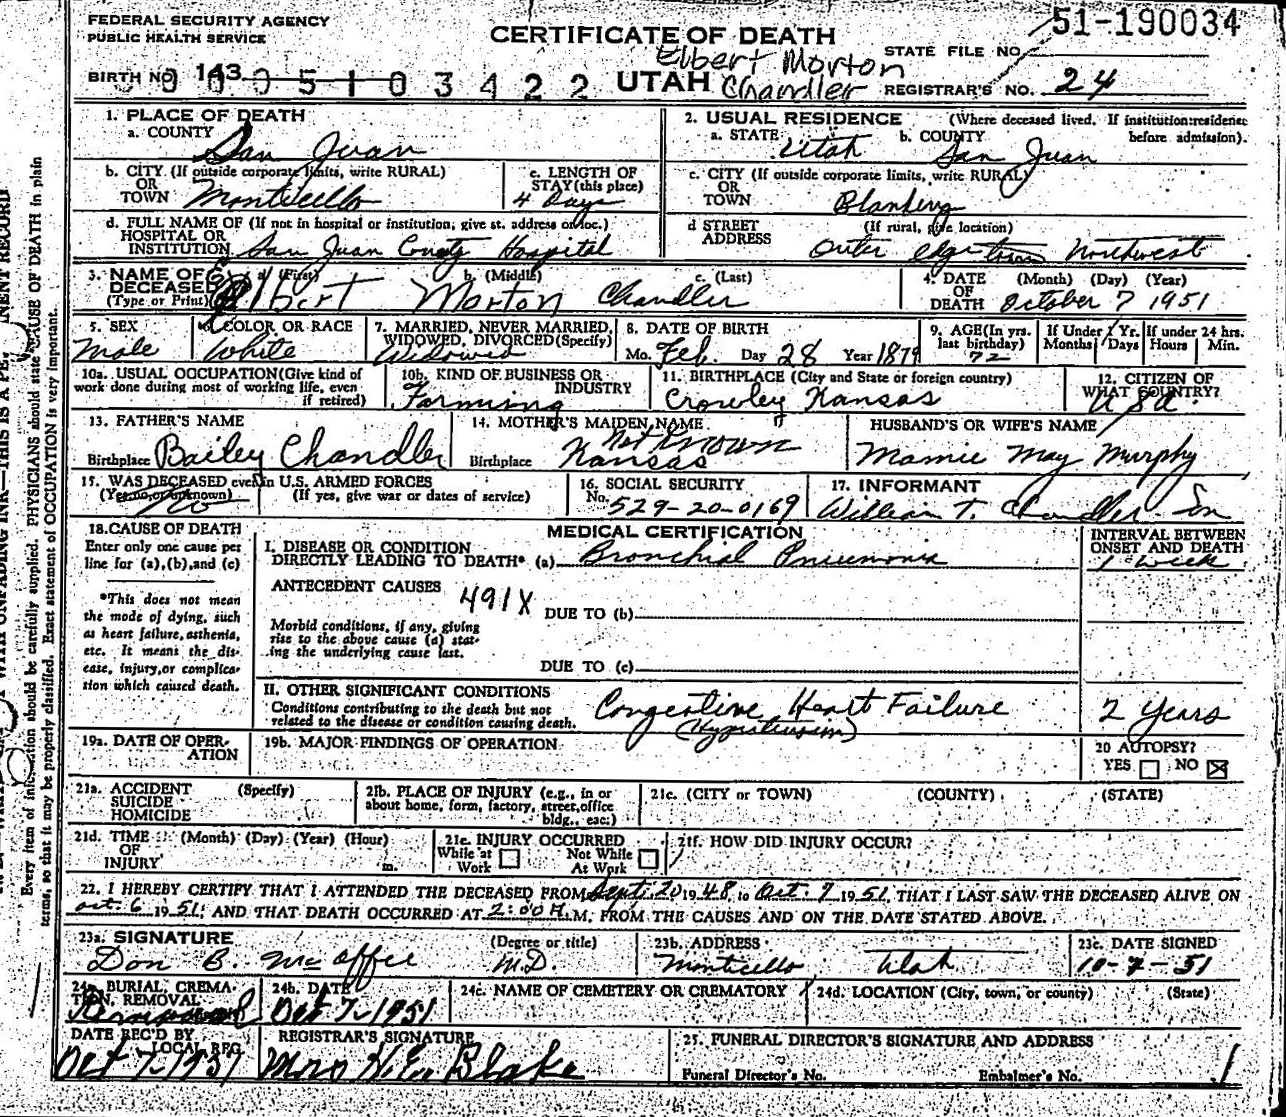 FEDERAL SECURITY AGENCY
PUBLIC HEALTH SERVICE
CERTIFICATE OF DEATH
51-190034
STATE FILE NO.
Elbert Morton
Chandler
BIRTH NO. 143
0005103422
UTAH
REGISTRAR'S NO. 24
1. PLACE OF DEATH
a. COUNTY San Juan
2. USUAL RESIDENCE (Where deceased lived. If institution:residence before admission).
a. STATE Utah b. COUNTY San Juan
b. CITY (If outside corporate limits, write RURAL)
OR
TOWN Monticello
c. LENGTH OF
STAY (this place)
4 Days
c. CITY (If outside corporate limits, write RURAL)
OR
TOWN Blanding
d. FULL NAME OF (If not in hospital or institution, give st. address or loc.)
HOSPITAL OR
INSTITUTION San Juan County Hospital
d STREET (If rural, give location)
ADDRESS Outer edge town Northwest
3. NAME OF a. (First) b. (Middle) c. (Last)
DECEASED
(Type or Print) Elbert Morton Chandler
4. DATE (Month) (Day) (Year)
OF
DEATH October 7 1951
5. SEX
Male
6. COLOR OR RACE
White
7. MARRIED, NEVER MARRIED,
WIDOWED, DIVORCED (Specify)
Widowed
8. DATE OF BIRTH
Mo. Feb. Day 28 Year 1879
9. AGE (In yrs.
last birthday)
72
If Under 1 Yr.
Months Days
If under 24 hrs.
Hours Min.
10a. USUAL OCCUPATION (Give kind of
work done during most of working life, even
if retired)
10b. KIND OF BUSINESS OR
INDUSTRY
Farming
11. BIRTHPLACE (City and State or foreign country)
Crowley Kansas
12. CITIZEN OF
WHAT COUNTRY?
USA.
13. FATHER'S NAME
Birthplace Bailey Chandler
14. MOTHER'S MAIDEN NAME
Not Known
Birthplace Kansas
HUSBAND'S OR WIFE'S NAME
Mamie May Murphy
15. WAS DECEASED ever in U.S. ARMED FORCES
(Yes, no, or unknown) (If yes, give war or dates of service)
No
16. SOCIAL SECURITY
No. 529-20-0169
17. INFORMANT
William T. Chandler Son
18. CAUSE OF DEATH
Enter only one cause per
line for (a), (b), and (c)
*This does not mean
the mode of dying, such
as heart failure, asthenia,
etc. It means the dis-
ease, injury, or complica-
tion which caused death.
MEDICAL CERTIFICATION
I. DISEASE OR CONDITION
DIRECTLY LEADING TO DEATH* (a) Bronchial Pneumonia
INTERVAL BETWEEN
ONSET AND DEATH
1 week
ANTECEDENT CAUSES
491X
DUE TO (b)
Morbid conditions, if any, giving
rise to the above cause (a) stat-
ing the underlying cause last.
DUE TO (c)
II. OTHER SIGNIFICANT CONDITIONS
Conditions contributing to the death but not
related to the disease or condition causing death.
Congestive Heart Failure
(Hypertension)
2 Years
19a. DATE OF OPER-
ATION
19b. MAJOR FINDINGS OF OPERATION
20 AUTOPSY?
YES NO
21a. ACCIDENT (Specify)
SUICIDE
HOMICIDE
21b. PLACE OF INJURY (e.g., in or
about home, form, factory, street, office
bldg., eac:)
21c. (CITY or TOWN) (COUNTY) (STATE)
21d. TIME (Month) (Day) (Year) (Hour)
OF
INJURY m.
21e. INJURY OCCURRED
While at Work Not While At Work
21f. HOW DID INJURY OCCUR?
22. I HEREBY CERTIFY THAT I ATTENDED THE DECEASED FROM Sept. 20 1948, to Oct. 7 1951, THAT I LAST SAW THE DECEASED ALIVE ON
Oct. 6 1951; AND THAT DEATH OCCURRED AT 2:00 A.M, FROM THE CAUSES AND ON THE DATE STATED ABOVE.
23a. SIGNATURE (Degree or title)
Don B. McAffee M.D.
23b. ADDRESS
Monticello Utah
23c. DATE SIGNED
10-7-51
24a. BURIAL, CREMA-
TION, REMOVAL
Removal
24b. DATE
Oct 7-1951
24c. NAME OF CEMETERY OR CREMATORY
24d. LOCATION (City, town, or county) (State)
DATE REC'D BY
LOCAL REG
Oct 7-1951
REGISTRAR'S SIGNATURE
Blake
25. FUNERAL DIRECTOR'S SIGNATURE AND ADDRESS
Funeral Director's No. Embalmer's No.
Every item of information should be carefully supplied. PHYSICIANS should state CAUSE OF DEATH in plain
terms, so that it may be properly classified. Exact statement of OCCUPATION is very important.
WITH UNFADING INK—THIS IS A PE NENT RECORD